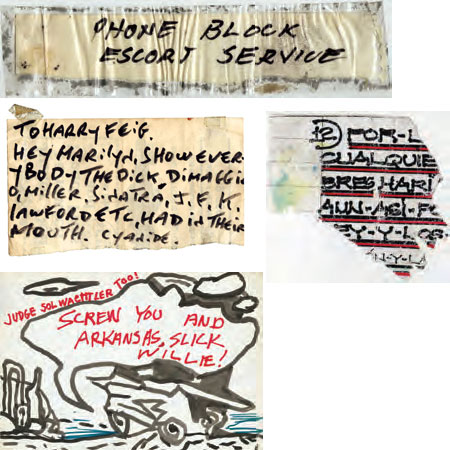 PHONE BLOCK
ESCORT SERVICE
TO HARRY FEIG.
HEY MARILYN, SHOW EVER-
YBODY THE DICK, DIMAGGI
O, MILLER, SINATRA, J.F.K.
LAWFORD ETC, HAD IN THEIR
MOUTH. CYANIDE.
12 FOR-L
CUALQUIE
BRES HARI
ANN-AGI-FO
EY-Y-LOS
N-Y-LA
JUDGE SOL WACHTLER TOO!
SCREW YOU AND
ARKANSAS, SLICK
WILLIE!